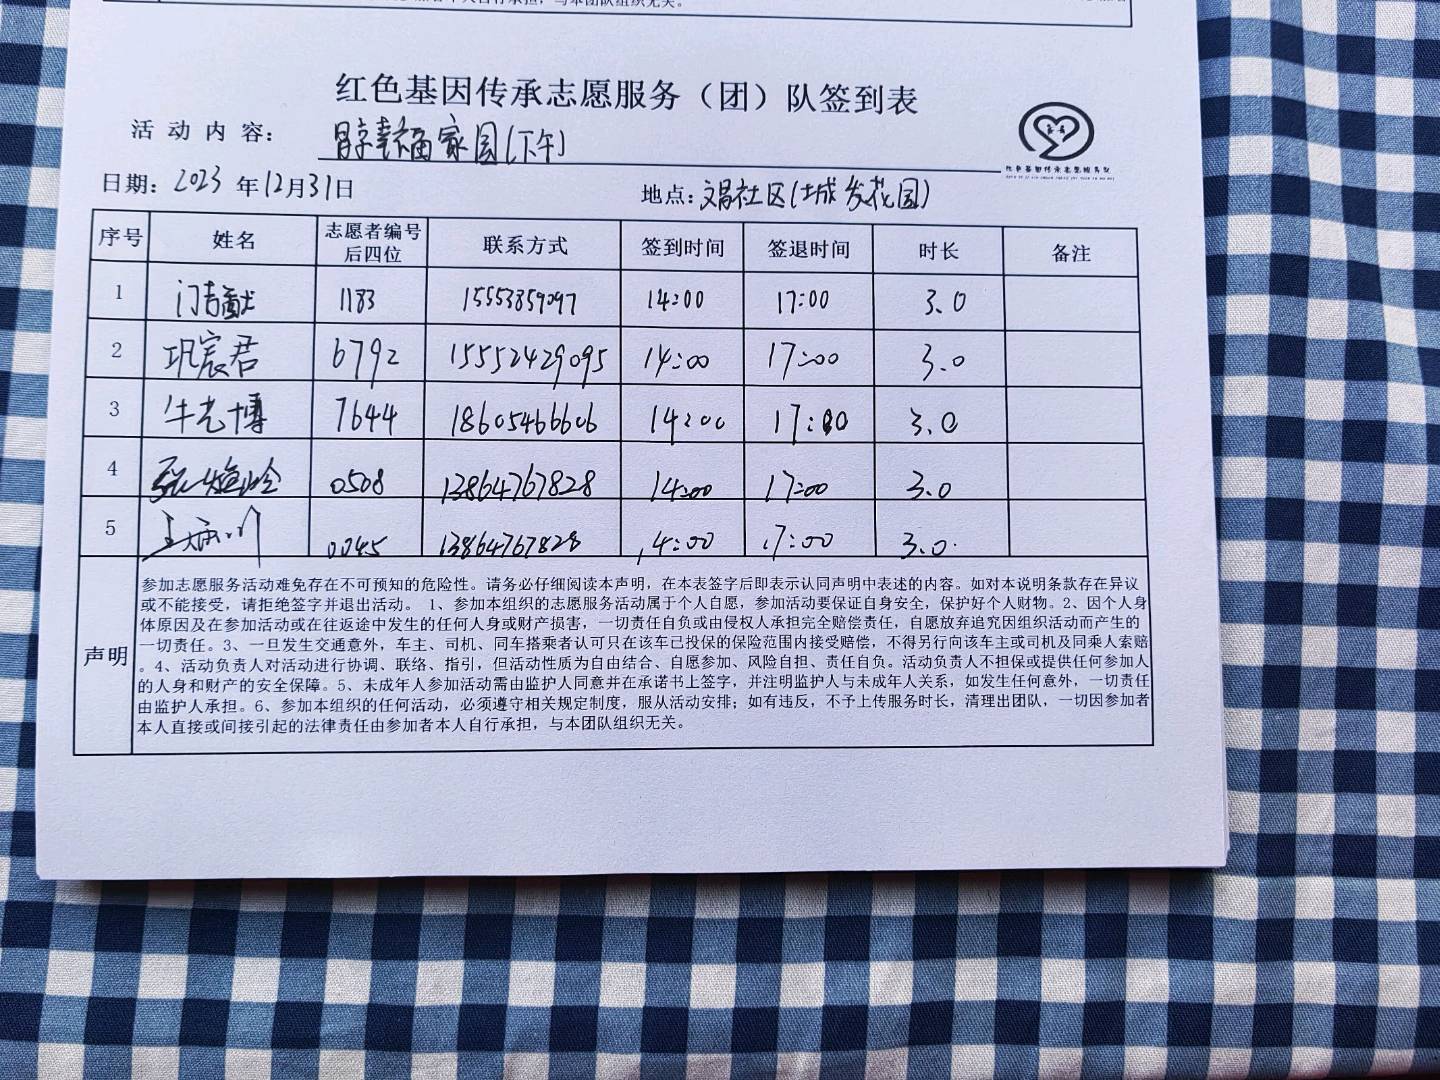 本人自行承担，与本团队组织无关。
红色基因传承志愿服务（团）队签到表
活动内容：幸福家园(下午)
日期：2023年12月31日 地点：文昌社区(城发花园)
序号 姓名 志愿者编号后四位 联系方式 签到时间 签退时间 时长 备注
1 1183 15553859097 14:00 17:00 3.0
2 巩宸君 6792 15552429095 14:00 17:00 3.0
3 牛光博 7644 18605466606 14:00 17:00 3.0
4 0508 13864767828 14:00 17:00 3.0
5 0045 13864767828 14:00 17:00 3.0
声明
参加志愿服务活动难免存在不可预知的危险性。请务必仔细阅读本声明，在本表签字后即表示认同声明中表述的内容。如对本说明条款存在异议
或不能接受，请拒绝签字并退出活动。 1、参加本组织的志愿服务活动属于个人自愿，参加活动要保证自身安全，保护好个人财物。2、因个人身
体原因及在参加活动或在往返途中发生的任何人身或财产损害，一切责任自负或由侵权人承担完全赔偿责任，自愿放弃追究因组织活动而产生的
一切责任。3、一旦发生交通意外，车主、司机、同车搭乘者认可只在该车已投保的保险范围内接受赔偿，不得另行向该车主或司机及同乘人索赔
。4、活动负责人对活动进行协调、联络、指引，但活动性质为自由结合、自愿参加、风险自担、责任自负。活动负责人不担保或提供任何参加人
的人身和财产的安全保障。5、未成年人参加活动需由监护人同意并在承诺书上签字，并注明监护人与未成年人关系，如发生任何意外，一切责任
由监护人承担。6、参加本组织的任何活动，必须遵守相关规定制度，服从活动安排；如有违反，不予上传服务时长，清理出团队，一切因参加者
本人直接或间接引起的法律责任由参加者本人自行承担，与本团队组织无关。